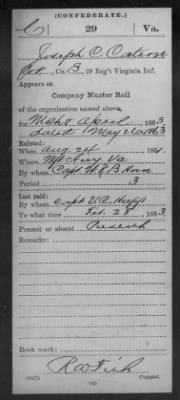 (CONFEDERATE.)
C 29 Va.
Joseph C. Catron
Co. B, 29 Reg't Virginia Inf.
Appears on
Company Muster Roll
of the organization named above,
for Mch & April 1863
dated May 1863
Enlisted:
When Aug. 24 186
Where Va
By whom Capt. W. R. B. Horn
Period 3
Last paid:
By whom Capt V. A.
To what time Feb. 28 1863
Present or absent Present
Remarks:
Book mark:
R W Fish
(642) Copyist.